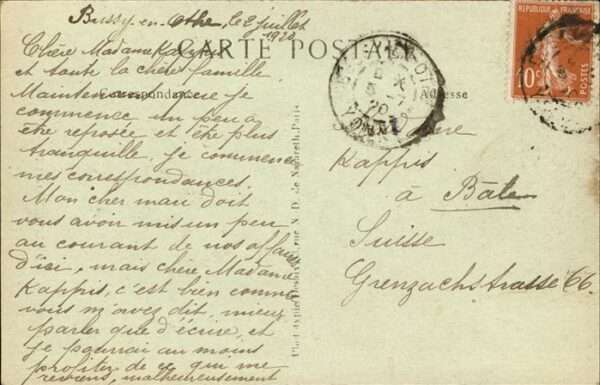 Bussy-en-Othe, le 2 juillet
1920
Chère Madame Kappis
et toute la chère famille
Maintenant que je
commence un peu a
être reposée et être plus
tranquille, je commence
mes correspondances.
Mon cher mari doit
vous avoir mis un peu
au courant de nos affaires
d'ici, mais chère Madame
Kappis, c'est bien comme
vous m'avez dit, mieux
parler que d'écrire, et
je pourrai au moins
profiter de ce qui me
reviens, malheureusement
CARTE POSTALE
Correspondance
Adresse
Phototypie Desaix, rue N. D. de Nazareth, Paris
RÉPUBLIQUE FRANÇAISE
10c
POSTES
Kappis
à Bâle
Suisse
Grenzachstrasse 66.